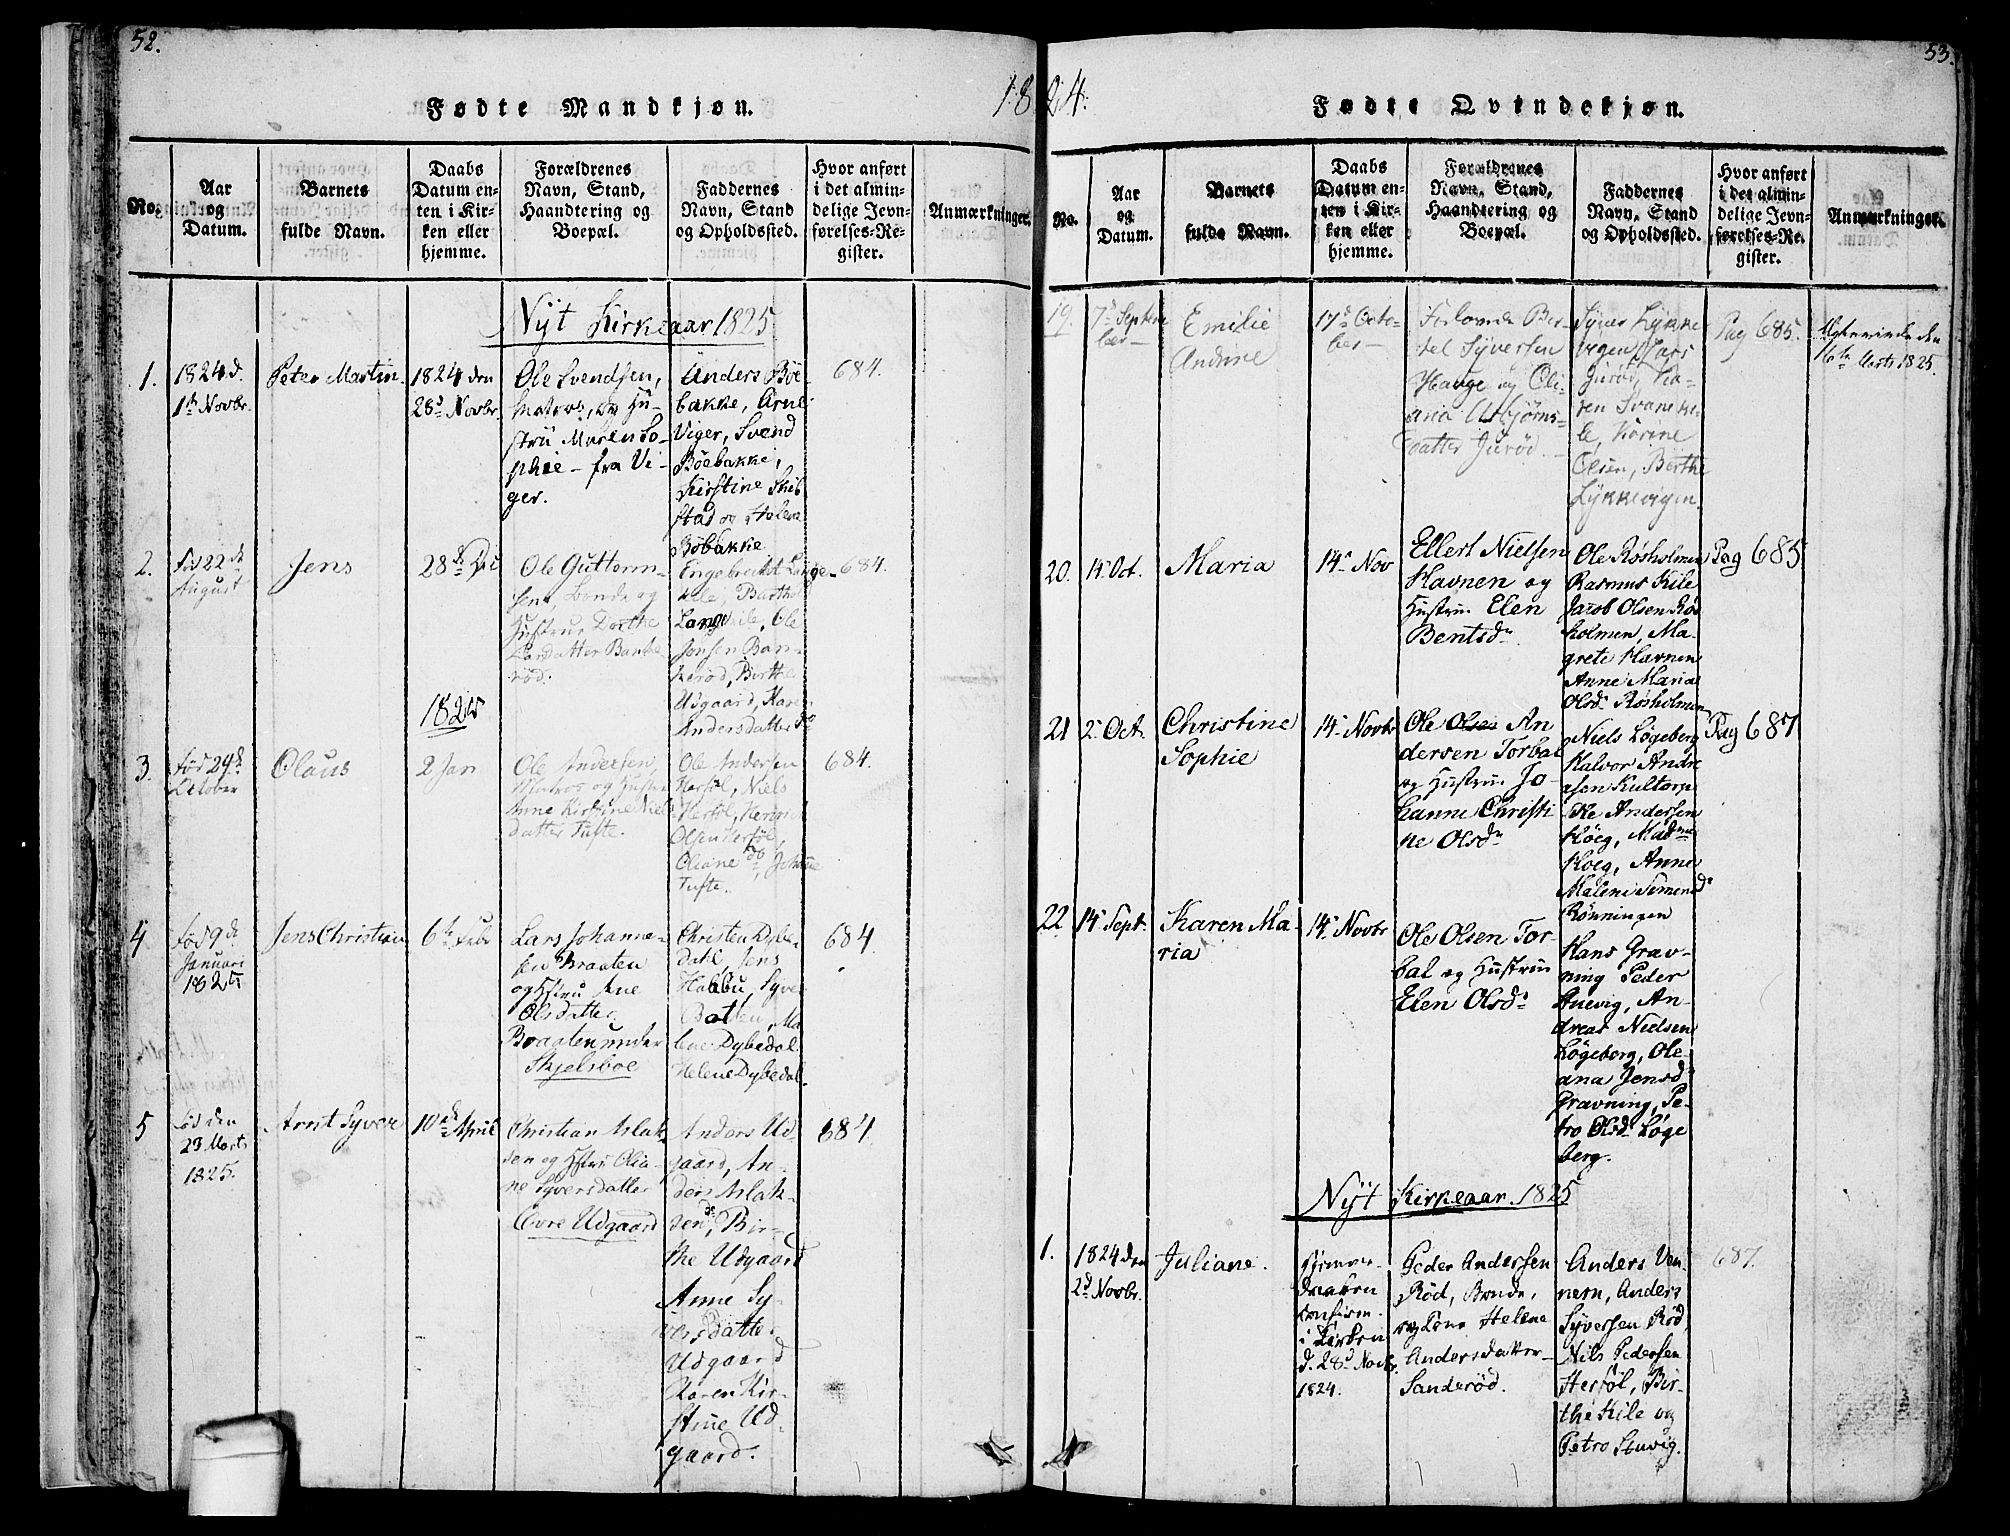 52.
Fødte Mandkjøn.
1824.
No.
Aar
og
Datum.
Barnets
fulde Navn.
Daabs
Datum en-
ten i Kir-
ken eller
hjemme.
Forældrenes
Navn, Stand,
Haandtering og
Boepæl.
Faddernes
Navn, Stand
og Opholdssted.
Hvor anført
i det almin-
delige Jevn-
førelses-Re-
gister.
Anmærkninger.
Nyt Kirkeaar 1825
1.
1824 d.
1ste Novbr.
Peter Martin
1824 den
28d Novbr.
Ole Svendsen,
Matros, og Hu-
stru Maren So-
phie - fra Vi-
ger.
Anders Bøe-
bakke, Arne
Viger, Svend
Bøebakke,
Kirstine Skib
stad og Helene
Bøbakke
684.
2.
Fød 22de
August
Jens
28de
Ole Guttorm-
sens, Bonde og
Hustrue Dorthe
Larsdatter Banke
rød.
Engebrecht Lange-
kile, Barthol
Langekile, Ole
Jonsen Ban-
kerød, Birthe
Udgaard, Karen
Andersdatter do
684.
1825
3.
Fød 29de
October
Olaus
2 Jan
Ole Andersen
Matros og Hustru
Anne Kirstine Niels
datter Tufte.
Ole Andersen
Herføl, Niels
Herføl,
Olsen Herføl
Oleane do, Johanne
Tufte.
684.
4
Fød 9de
Januari
1825
Jens Christian
6te Febr
Lars Johanne-
sen Braaten
og Hstru Ane
Olsdatter
Braaten under
Skjelsboe
Christen Dybe-
dahl Jens
Habbu, Syver
Dotten, Ma
lene Dybedal
Helene Dybedal.
684.
5
Fød den
23 Marts
1825.
Arnt Syver
10de April
Christian Aslak-
sen og Hstru Olia-
ne Syversdatter
Øvre Udgaard
Anders Ud-
gaard, An-
ders Aslak-
sen do, Bir-
the Udgaard
Anne Sy-
versdatter
Udgaard
Karen Kir-
stine Ud-
gaard.
684.
53.
Fødte Qvindekjøn.
No.
Aar
og
Datum.
Barnets
fulde Navn.
Daabs
Datum en-
ten i Kir-
ken eller
hjemme.
Forældrenes
Navn, Stand,
Haandtering og
Boepæl.
Faddernes
Navn, Stand
og Opholdssted.
Hvor anført
i det almin-
delige Jevn-
førelses-Re-
gister.
Anmærkninger.
19.
7de Septem
ber
Emilie
Andrine
17de Octo-
ber
Forlovede Ber-
tel Syversen
Hauge og Oli-
aria Asbjørns-
datter Jurød.
Syver Lykke
vigen, Lars
Jurød, Ka-
ren Svaneki-
le, Karine
Olsen, Berthe
Lykkevigen
Pag 685.
den
16de Marts 1825.
20.
15 Oct.
Maria
14 Nov
Ellert Nielsen
Havnen og
Hustrue Elen
Bentsdr
Ole Røsholmen
Rasmus Kile
Jacob Olsen Røs
holmen, Ma-
grete Havnen
Anne Maria
Olsdr Røsholmen
Pag 685
21
2 Oct.
Christine
Sophie
14 Novbr
Ole Olsen An
dersen Torbal
og Hustrue Jo-
hanne Christi
ne Olsdr
Niels Løgeberg
Halvor Andre
asen Kultorp
Ole Andersen
Høeg, Madme
Høeg, Anne
Malene Simensdr
Rønningen
Pag 687
22
14 Sept.
Karen Ma-
ria
14 Novbr
Ole Olsen Tor-
bal og Hustrue
Elen Olsdr
Hans Grav-
ning Peder
Stuevig, An-
dreas Nielsen
Løgeberg, Ole-
ana Jensdr
Gravning, Pe-
tro Olsdr Løge
berg.
Nyt Kirkeaar. 1825
1.
1824 den
2d Novbr.
Juliane.
Hjemme-
daaben
confirm.
i Kirken
d. 28d Novbr.
1824.
Peder Andersen
Rød, Bonde,
og Kone Helene
Andersdatter
Sanderød.
Anders Ven-
nern, Anders
Syversen Rød,
Nils Pedersen
Herføl, Bir-
the Kile og
Petro Stuvig.
687.